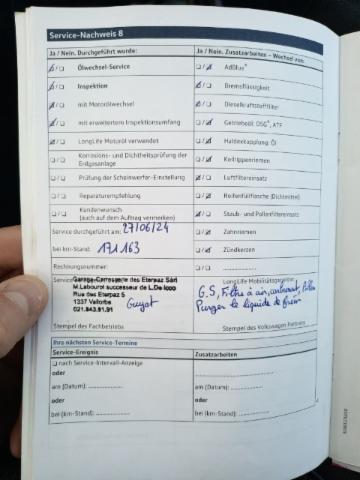 Service-Nachweis 8
Ja / Nein. Durchgeführt wurde:
Ölwechsel-Service
Inspektion
mit Motorölwechsel
mit erweitertem Inspektionsumfang
LongLife Motoröl verwendet
Korrosions- und Dichtheitsprüfung der
Erdgasanlage
Prüfung der Scheinwerfer-Einstellung
Reparaturempfehlung
Kundenwunsch
(auch auf dem Auftrag vermerken)
Service durchgeführt am: 27/06/24
bei km-Stand: 171 163
Rechnungsnummer:
Garage-Carrosserie des Eterpaz Sàrl
M.Labourot successeur de L.De Icco
Rue des Eterpaz 5
1337 Vallorbe
021.843.91.91
Guyat
Stempel des Fachbetriebs
Ja / Nein. Zusatzarbeiten – Wechsel von:
AdBlue®
Bremsflüssigkeit
Dieselkraftstofffilter
Getriebeöl: DSG®, ATF
Haldexkupplung: Öl
Keilrippenriemen
Luftfiltereinsatz
Reifenfüllflasche (Dichtmittel)
Staub- und Pollenfiltereinsatz
Zahnriemen
Zündkerzen
LongLife Mobilitätsgarantie
G.S, Filtre à air, carburant, Pollen
Purger le liquide de frein
Stempel des Volkswagen Partners
Ihre nächsten Service-Termine
Service-Ereignis
nach Service-Intervall-Anzeige
oder
am (Datum):
oder
bei (km-Stand):
Zusatzarbeiten
am (Datum):
oder
bei (km-Stand):